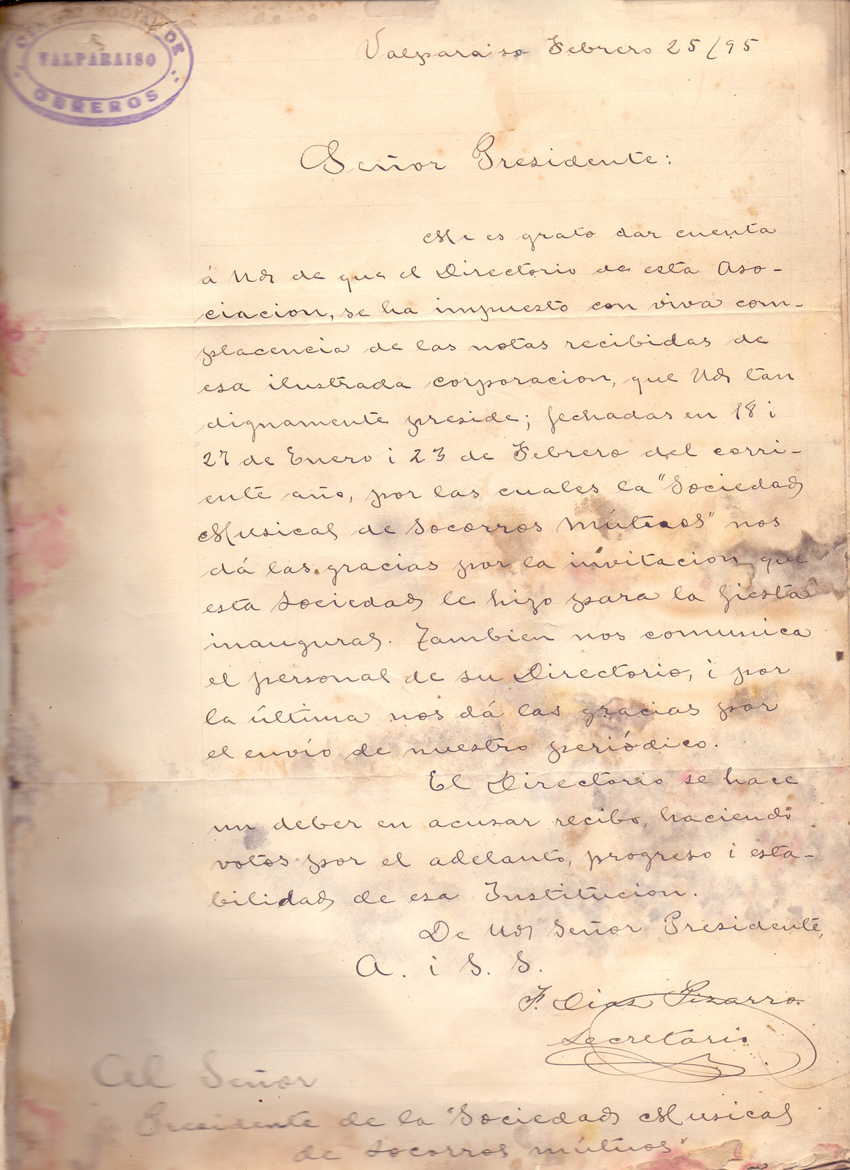 SOCIAL DE
VALPARAISO
OBREROS
Valparaiso Febrero 25/95
Señor Presidente:
Me es grato dar cuenta
á Ud de que el Directorio de esta Aso-
ciacion, se ha impuesto con viva com-
placencia de las notas recibidas de
esa ilustrada corporacion, que Ud tan
dignamente preside; fechadas en 18 i
27 de Enero i 23 de Febrero del corri-
ente año, por las cuales la "Sociedad
Musical de Socorros Mútuos" nos
dá las gracias por la invitacion que
esta Sociedad le hizo para la fiesta
inaugural. Tambien nos comunica
el personal de su Directorio, i por
la última nos dá las gracias por
el envío de nuestro periódico.
El Directorio se hace
un deber en acusar recibo, haciendo
votos por el adelanto, progreso i esta-
bilidad de esa Institucion.
De Ud Señor Presidente,
A. i S. S.
F. Diaz Pizarro
Secretario
Al Señor
Presidente de la "Sociedad Musical
de Socorros mútuos"